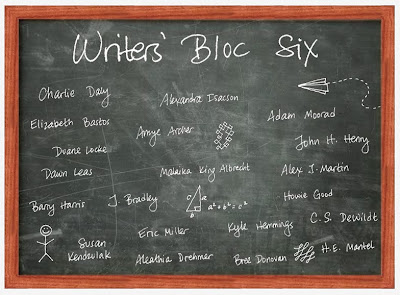 Writers' Bloc Six
Charlie Daly
Alexandra Isacson
Adam Moorad
Elizabeth Bastos
Amye Archer
John H. Henry
Duane Locke
Dawn Leas
Malaika King Albrecht
Alex J. Martin
Barry Harris
J. Bradley
c a b a² + b² = c²
Howie Good
C. S. DeWildt
Susan
Kendzulak
Eric Miller
Kyle Hemmings
Aleathia Drehmer
Bree Donovan
H.E. Mantel